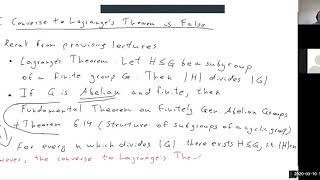 I Converse to Lagrange's Theorem is False
Recall from previous lectures
• Lagrange's Theorem: Let H≤G be a subgroup
of a finite group G. Then |H| divides |G|
• If G is Abelian and finite, then
Fundamental Theorem on Finitely Gen. Abelian Groups
+ Theorem 6.14 (Structure of subgroups of a cyclic group)
For every n which divides |G| there exists H≤G, st. |H|=n
However, the converse to Lagrange's The
2020-03-10